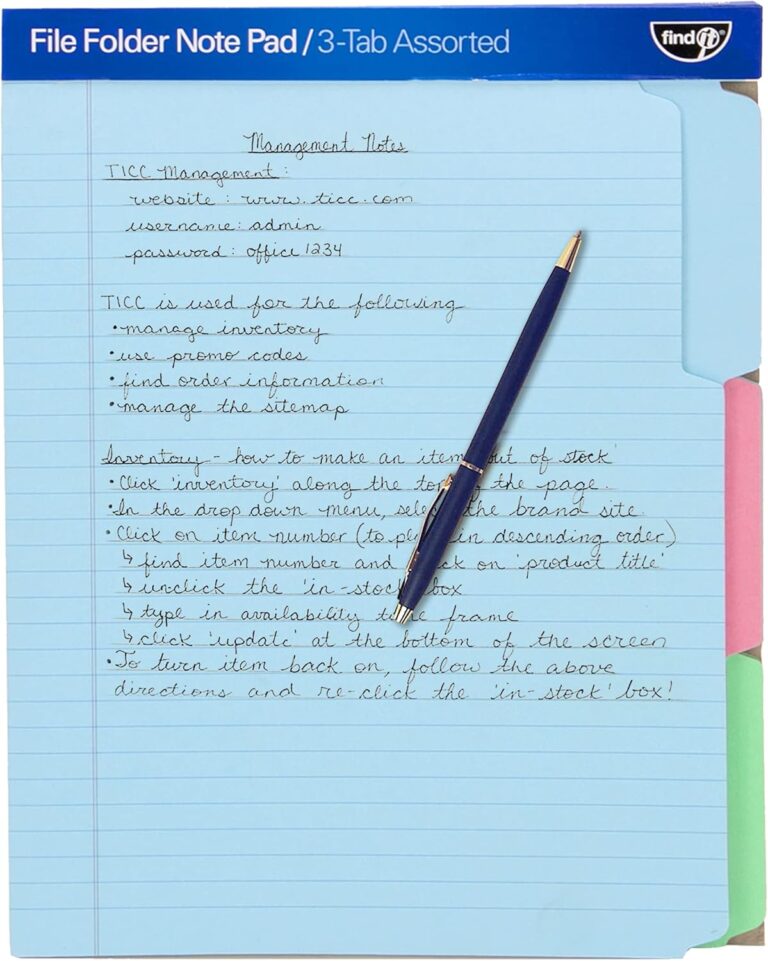 File Folder Note Pad / 3-Tab Assorted
find it®
Management Notes
TICC Management:
website: www.ticc.com
username: admin
password: office1234
TICC is used for the following
•manage inventory
•use promo codes
•find order information
•manage the sitemap
Inventory - how to make an item out of stock'
•Click 'inventory' along the top of the page.
•In the drop down menu, select the brand site.
•Click on item number (to in descending order)
↳ find item number and on 'product title'
↳ unclick the 'in-stock' box
↳ type in availability frame
↳ click 'update' at the bottom of the screen
•To turn item back on, follow the above
directions and re-click the 'in-stock' box!